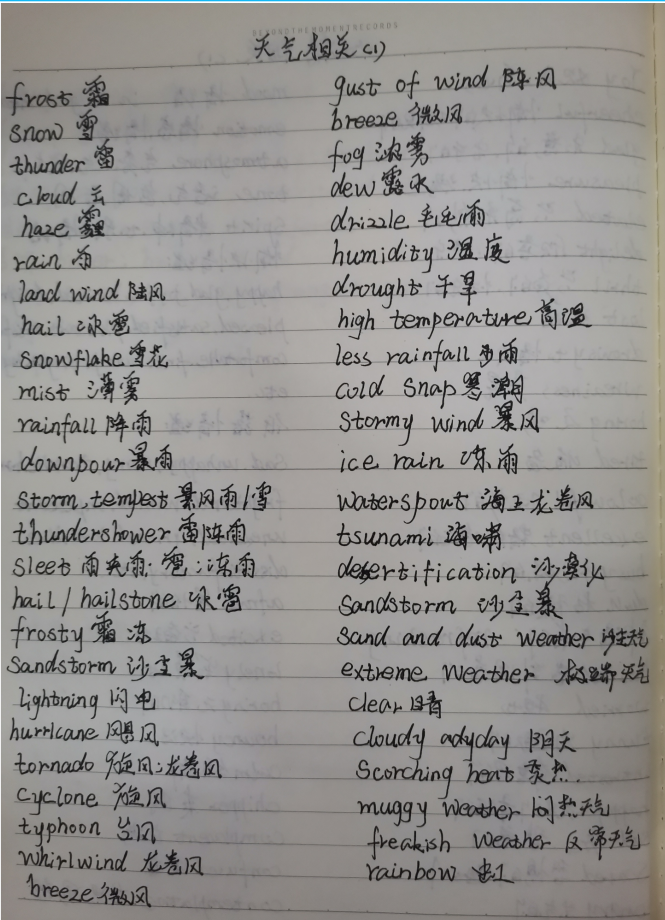 天气相关(1)
frost 霜
snow 雪
thunder 雷
cloud 云
haze 霾
rain 雨
land wind 陆风
hail 冰雹
snowflake 雪花
mist 薄雾
rainfall 降雨
downpour 暴雨
storm, tempest 暴风雨/雪
thundershower 雷阵雨
sleet 雨夹雨·雹;冻雨
hail / hailstone 冰雹
frosty 霜冻
sandstorm 沙尘暴
lightning 闪电
hurricane 飓风
tornado 旋风;龙卷风
cyclone 旋风
typhoon 台风
whirlwind 龙卷风
breeze 微风
gust of wind 阵风
breeze 微风
fog 浓雾
dew 露水
drizzle 毛毛雨
humidity 湿度
drought 干旱
high temperature 高温
less rainfall 少雨
cold snap 寒潮
stormy wind 暴风
ice rain 冻雨
waterspout 海上龙卷风
tsunami 海啸
desertification 沙漠化
sandstorm 沙尘暴
sand and dust weather 沙尘天气
extreme weather 极端天气
clear 晴
cloudy adyday 阴天
Scorching heat 炎热
muggy weather 闷热天气
freakish weather 反常天气
rainbow 虹